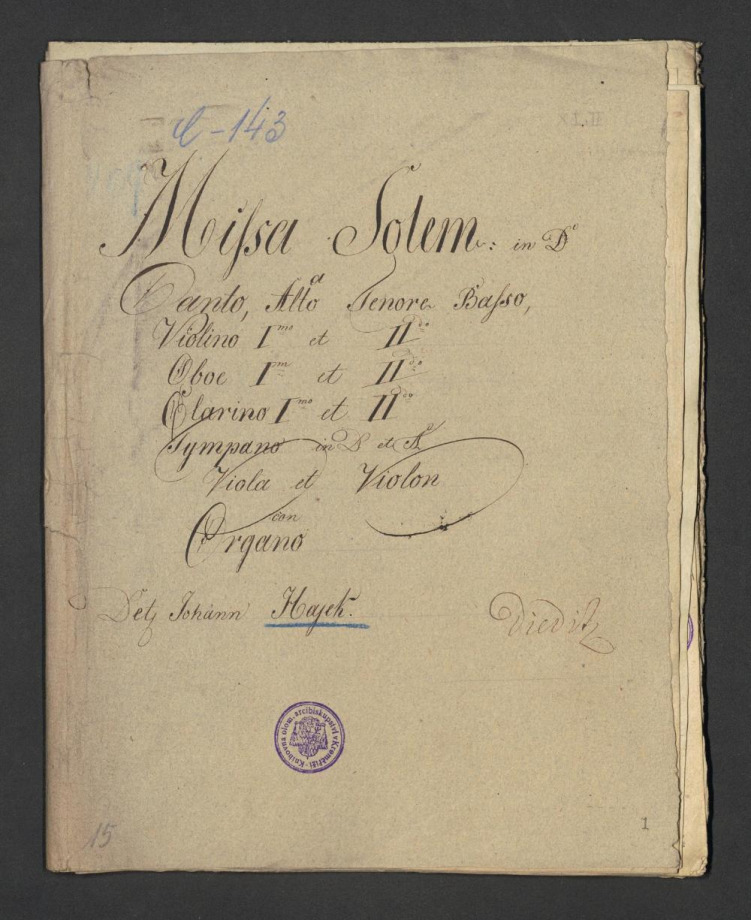 C-143
Missa Solem: in D
Canto, Alto Tenore Basso,
Violino I^mo et II^do
Oboe I^m et II^do
Clarino I^mo et II^do
Tympano in D et A
Viola et Violon
con
Organo
Johann Hajek.
Dieditz
Knihovna olom. arcibiskupství v Kroměříži
15
1